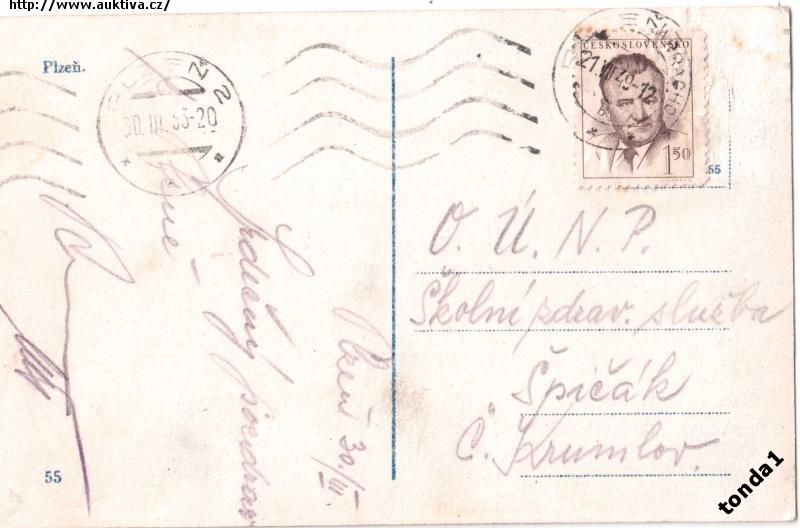 http://www.auktiva.cz/
Plzeň.
PLZEŇ 2
30. III. 53-20
ČESKOSLOVENSKO
21.VII.49-12
1 50
55
O. Ú. N. P.
Školní zdrav. služba
Špičák
Č. Krumlov
Plzeň 30./III.
Srdečný pozdrav
55
tonda1